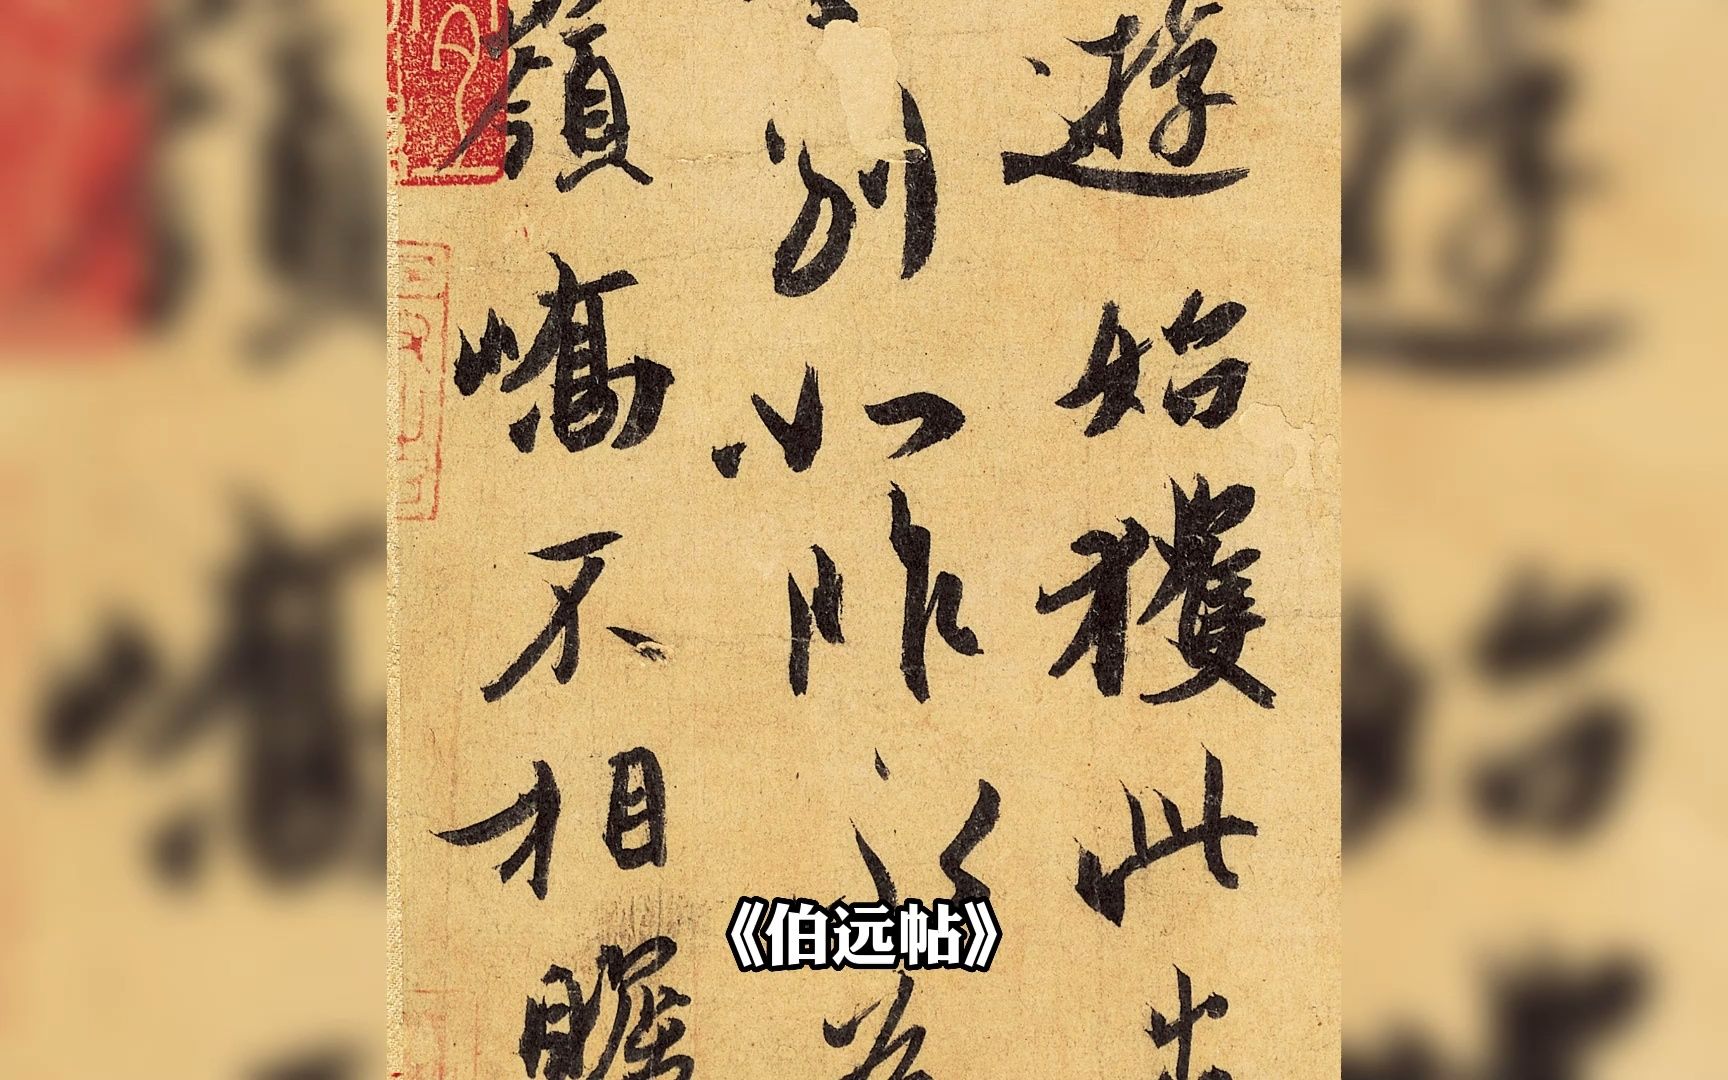 遊始獲此出
別如昨永為
嶺嶠不相瞻
《伯远帖》